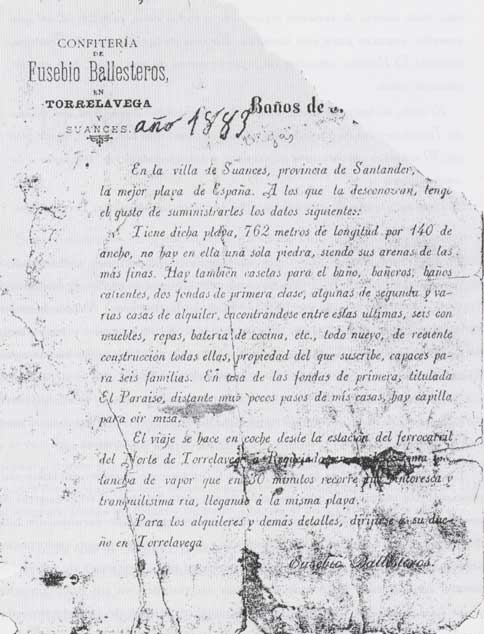 CONFITERÍA
DE
EUSEBIO BALLESTEROS,
EN
TORRELAVEGA
Y
SUANCES.
año 1883
Baños de
En la villa de Suances, provincia de Santander,
la mejor playa de España. A los que la desconozcan, tengo
el gusto de suministrarles los datos siguientes:
Tiene dicha playa, 762 metros de longitud por 140 de
ancho, no hay en ella una sola piedra, siendo sus arenas de las
más finas. Hay también casetas para el baño, bañeros, baños
calientes, dos fondas de primera clase, algunas de segunda y va-
rias casas de alquiler, encontrándose entre estas ultimas, seis con
muebles, ropas, bateria de cocina, etc., todo nuevo, de reciente
construcción todas ellas, propiedad del que suscribe, capaces pa-
ra seis familias. En una de las fondas de primera, titulada
El Paraiso, distante muy pocos pasos de mis casas, hay capilla
para oir misa.
El viaje se hace en coche desde la estación del ferrocarril
del Norte de Torrelavega á Requejada
lancha de vapor que en 30 minutos recorre pintoresca y
tranquilisima ria, llegando á la misma playa.
Para los alquileres y demás detalles, dirigirse á su due-
ño en Torrelavega
Eusebio Ballesteros.